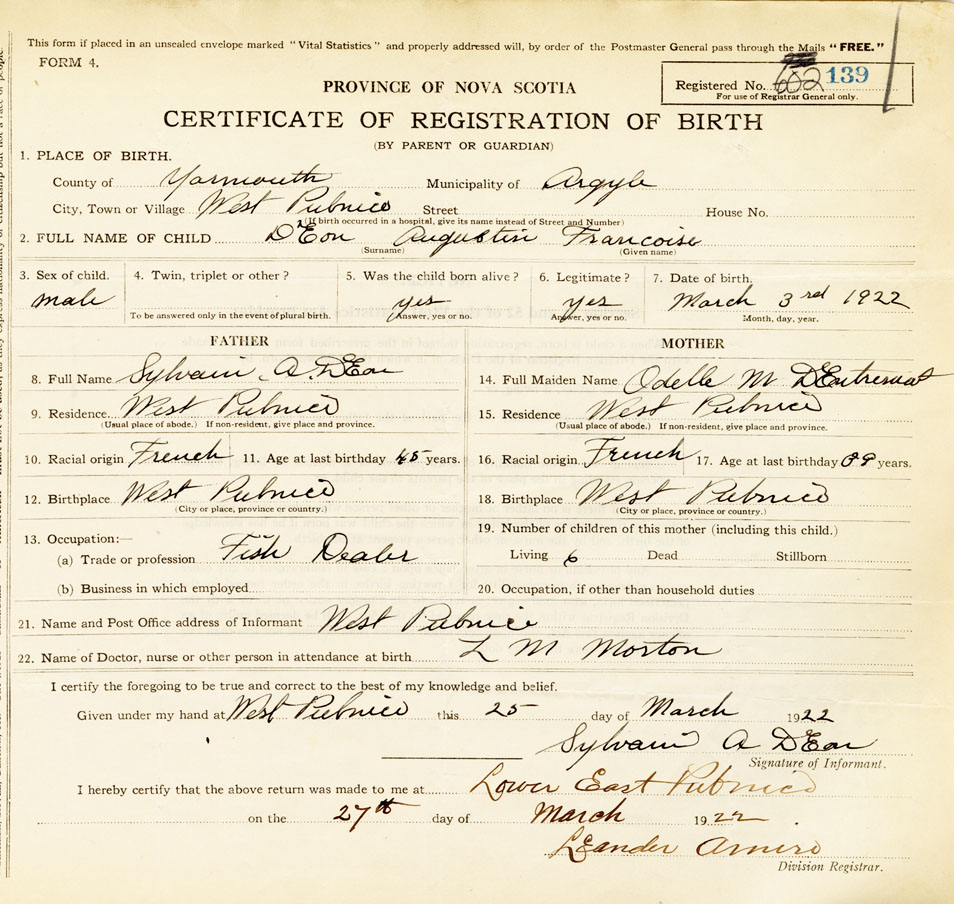 This form if placed in an unsealed envelope marked "Vital Statistics" and properly addressed will, by order of the Postmaster General pass through the Mails "FREE."
FORM 4.
Registered No. 139
For use of Registrar General only.
PROVINCE OF NOVA SCOTIA
CERTIFICATE OF REGISTRATION OF BIRTH
(BY PARENT OR GUARDIAN)
1. PLACE OF BIRTH.
County of Yarmouth Municipality of Argyle
City, Town or Village West Pubnico Street House No.
(If birth occurred in a hospital, give its name instead of Street and Number)
2. FULL NAME OF CHILD D'Eon Augustin Francoise
(Surname) (Given name)
3. Sex of child. 4. Twin, triplet or other? 5. Was the child born alive? 6. Legitimate? 7. Date of birth.
male yes yes March 3rd 1922
To be answered only in the event of plural birth. Answer, yes or no. Answer, yes or no. Month, day, year.
FATHER
8. Full Name Sylvain A. D'Eon
9. Residence West Pubnico
(Usual place of abode.) If non-resident, give place and province.
10. Racial origin French 11. Age at last birthday 45 years.
12. Birthplace West Pubnico
(City or place, province or country.)
13. Occupation:—
(a) Trade or profession Fish Dealer
(b) Business in which employed
MOTHER
14. Full Maiden Name Odelle M D'Entremont
15. Residence West Pubnico
(Usual place of abode.) If non-resident, give place and province.
16. Racial origin French 17. Age at last birthday 39 years.
18. Birthplace West Pubnico
(City or place, province or country.)
19. Number of children of this mother (including this child.)
Living 6 Dead Stillborn
20. Occupation, if other than household duties
21. Name and Post Office address of Informant West Pubnico
22. Name of Doctor, nurse or other person in attendance at birth L M Morton
I certify the foregoing to be true and correct to the best of my knowledge and belief.
Given under my hand at West Pubnico this 25 day of March 1922
Sylvain A D'Eon
Signature of Informant.
I hereby certify that the above return was made to me at Lower East Pubnico
on the 27th day of March 1922
Leander Amiro
Division Registrar.